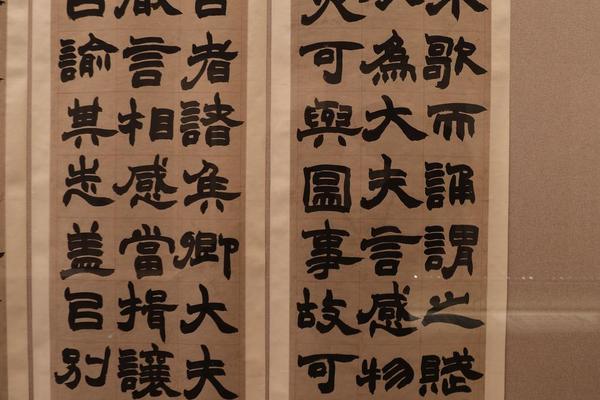 不歌而誦謂之賦
以為大夫言感物
美可與圖事故可
古者諸矦卿大夫
微言相感當揖讓
㠯諭其志盖㠯別